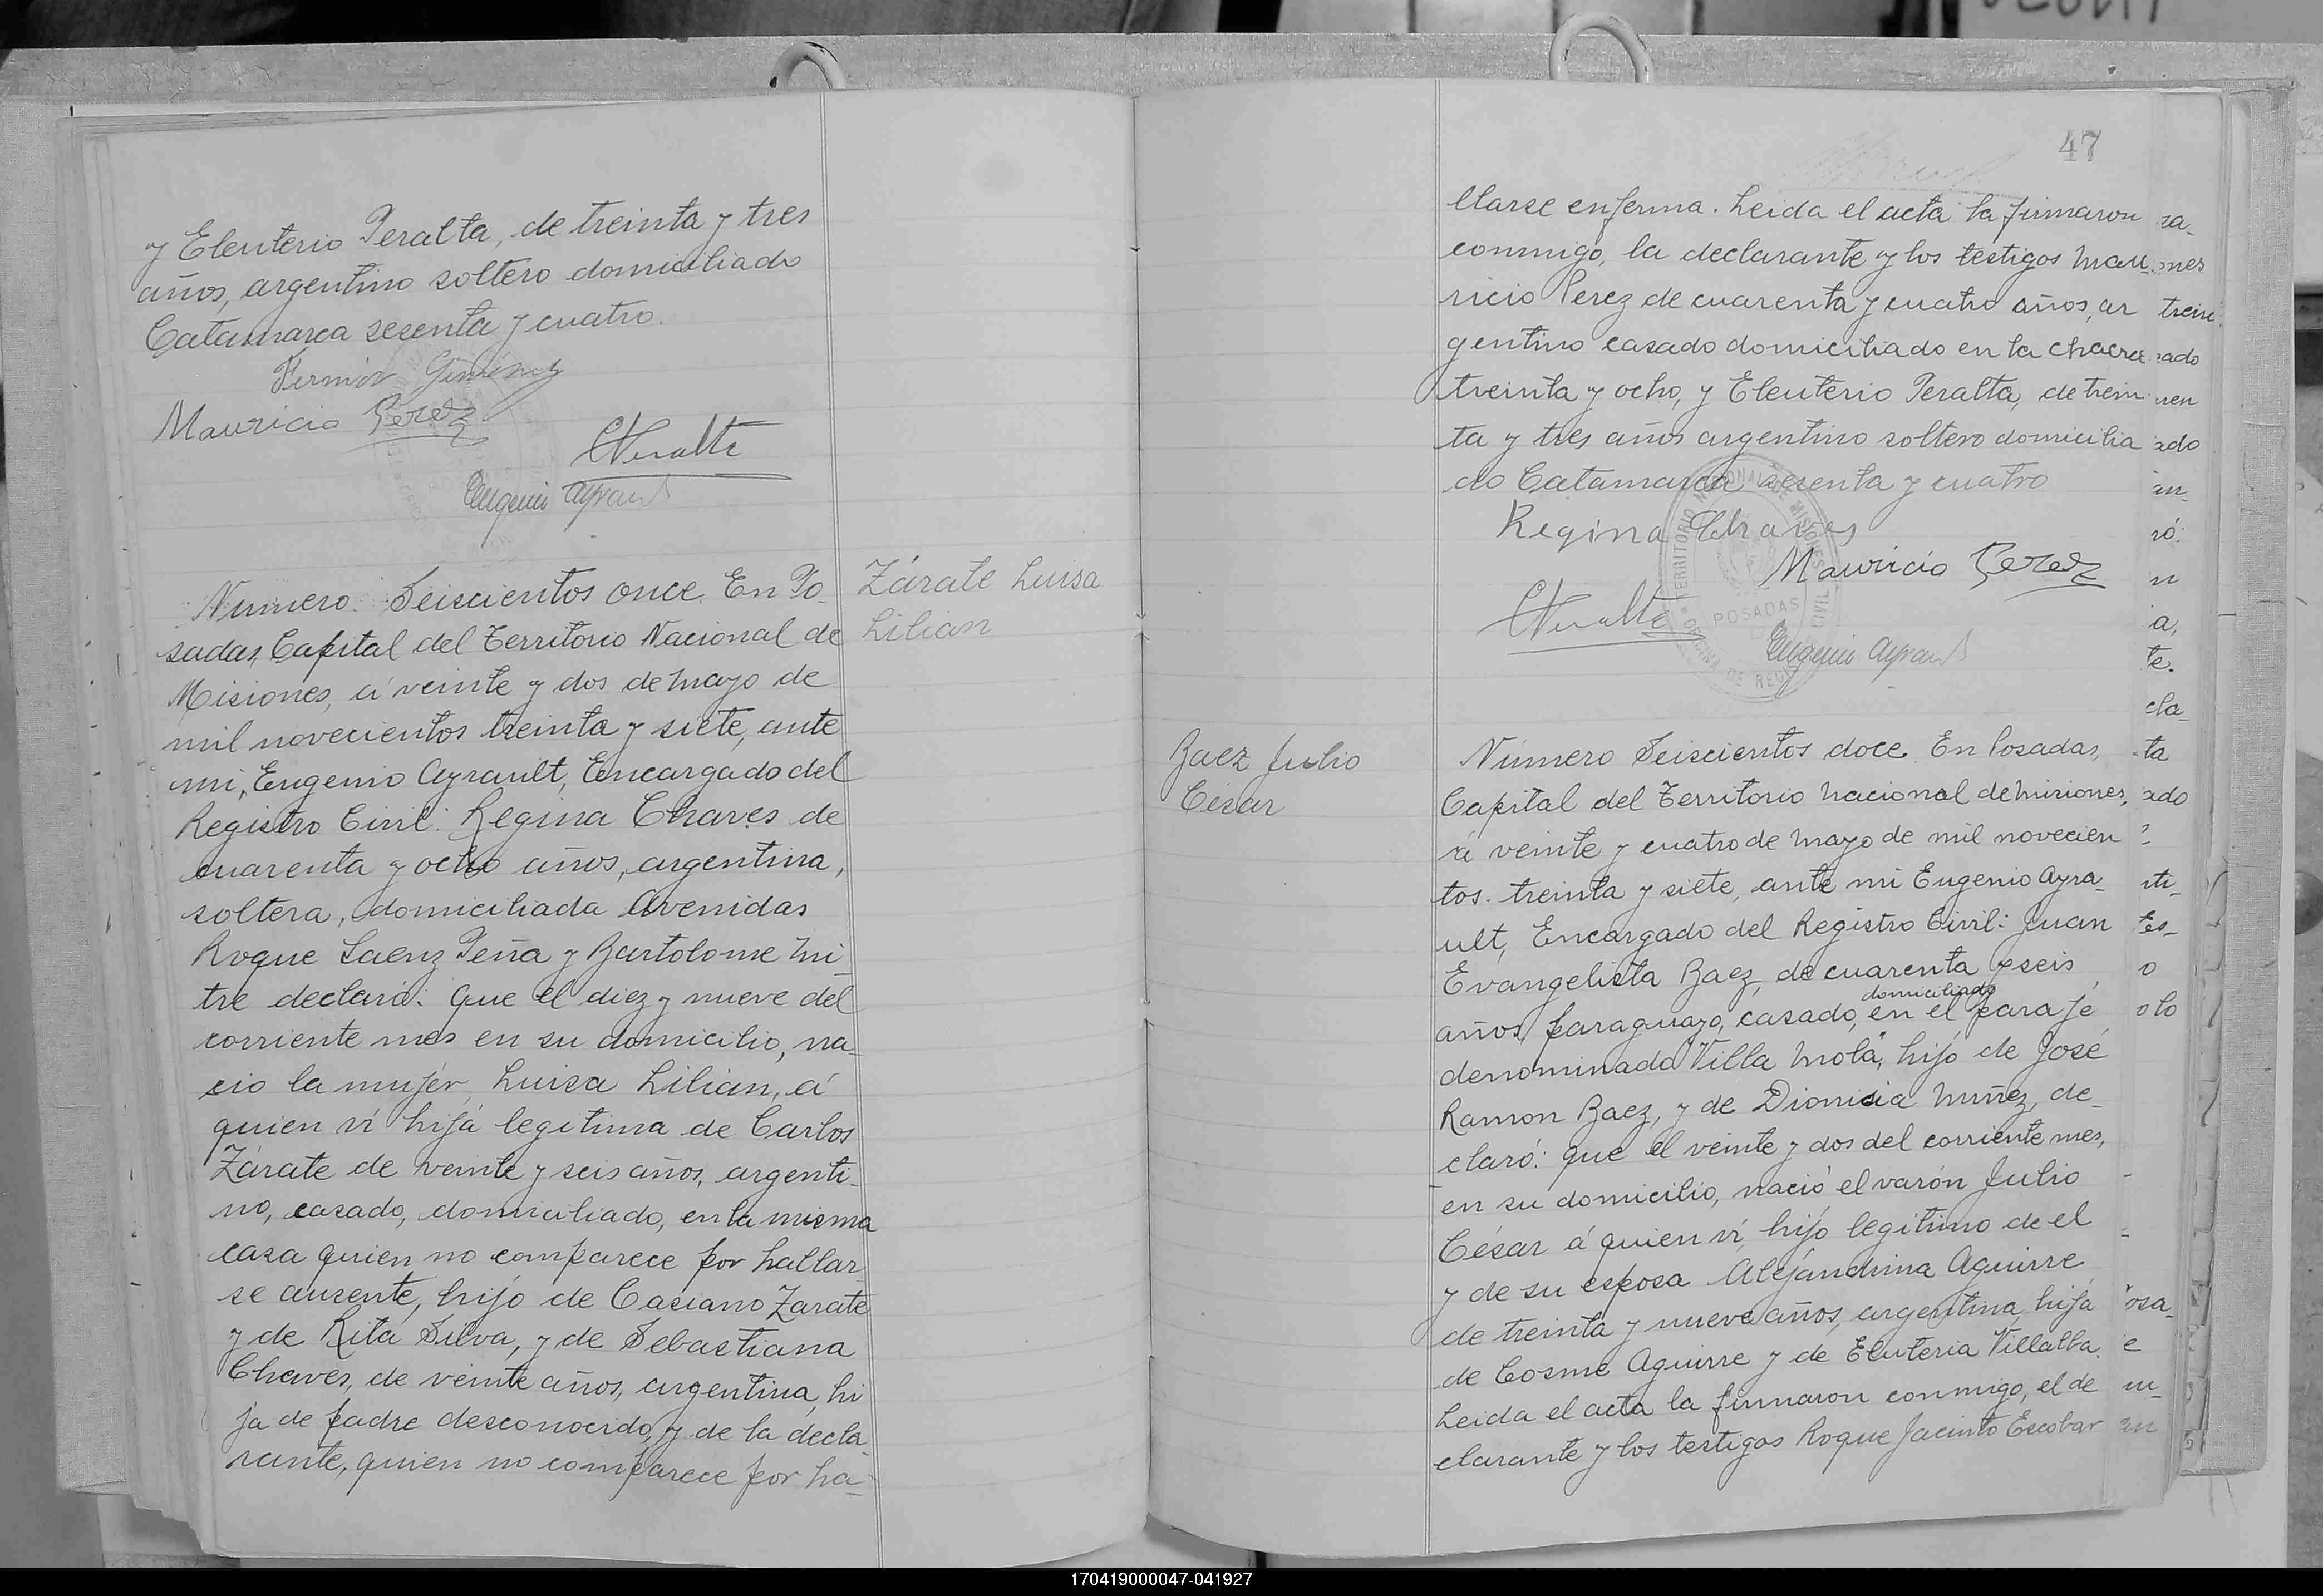 y Eleuterio Peralta, de treinta y tres
años, argentino soltero domiciliado
Catamarca sesenta y cuatro.
Fermin Giménez
Mauricio Perez
EPeralta
Eugenio Ayrault
Número Seiscientos once. En Po-
sadas, Capital del Territorio Nacional de
Misiones, á veinte y dos de Mayo de
mil novecientos treinta y siete, ante
mi, Eugenio Ayrault, Encargado del
Registro Civil: Regina Chaves de
cuarenta y ocho años, argentina,
soltera, domiciliada Avenidas
Roque Saenz Peña y Bartolome Mi-
tre declaró: Que el diez y nueve del
corriente mes en su domicilio, na-
cio la mujer, Luisa Lilian, á
quien ví hija legitima de Carlos
Zárate de veinte y seis años, argenti-
no, casado, domiciliado, en la misma
casa quien no comparece por hallar-
se ausente, hijo de Casiano Zarate
y de Rita Silva, y de Sebastiana
Chaves, de veinte años, argentina, hi
ja de padre desconocido, y de la decla-
rante, quien no comparece por ha-
Zárate Luisa
Lilian
47
llarse enferma. Leida el acta la firmaron
conmigo, la declarante y los testigos Mau-
ricio Perez de cuarenta y cuatro años, ar
gentino casado domiciliado en la chacra
treinta y ocho, y Eleuterio Peralta, de trein
ta y tres años argentino soltero domicilia
do Catamarca sesenta y cuatro
Regina Chaves
Mauricio Perez
EPeralta
Eugenio Ayrault
TERRITORIO NACIONAL DE MISIONES
POSADAS
OFICINA DE REGISTRO CIVIL
Baez Julio
César
Número Seiscientos doce. En Posadas,
Capital del Territorio Nacional de Misiones,
á veinte y cuatro de Mayo de mil novecien
tos treinta y siete, ante mi Eugenio Ayra-
ult, Encargado del Registro Civil: Juan
Evangelista Baez, de cuarenta y seis
domiciliado
años, paraguayo, casado, en el paraje
denominado "Villa Mola", hijo de José
Ramon Baez, y de Dionisia Nuñez, de-
claró: Que el veinte y dos del corriente mes,
en su domicilio, nació el varón Julio
César á quien ví, hijo legitimo de el
y de su esposa Alejandrina Aguirre
de treinta y nueve años, argentina, hija
de Cosme Aguirre y de Eleuteria Villalba.
Leida el acta la firmaron conmigo, el de
clarante y los testigos Roque Jacinto Escobar
170419000047-041927